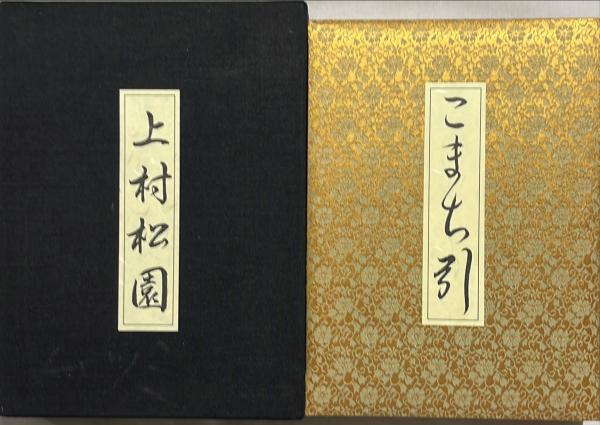 上村松園
こまち引